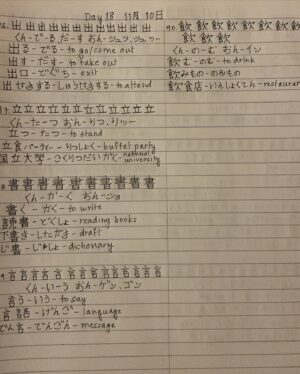 Day 18 11月10日
6. 出出出出出出出出出出出出
くん-でーる、だーす おん-シュツ、シュッー
出る-でる-to go/come out
出す-だす-to take out
出口-でぐち-exit
出せきする-しゅうせきする-to attend
37. 立立立立立立立立立立立立
くん-たーつ おん-りつ、りッー
立つ-たつ-to stand
立食パーティー-りっしょく-buffet party
国立大学-こくりつだいがく-national university
8. 書書書書書書書書書書書書
くん-かーく おん-ショ
書く-かく-to write
読書-どくしょ-reading books
下書き-したがき-draft
じ書-じしょ-dictionary
9. 言言言言言言言言言言言言
くん-いーう おん-ゲン、ゴン
言う-いう-to say
言語-げんご-language
でん言-でんごん-message
40. 飲飲飲飲飲飲飲飲飲
飲飲飲
くん-のーむ おん-イン
飲む-のむ-to drink
飲みもの-のみもの
飲食店-いんしょくてん-restaurant